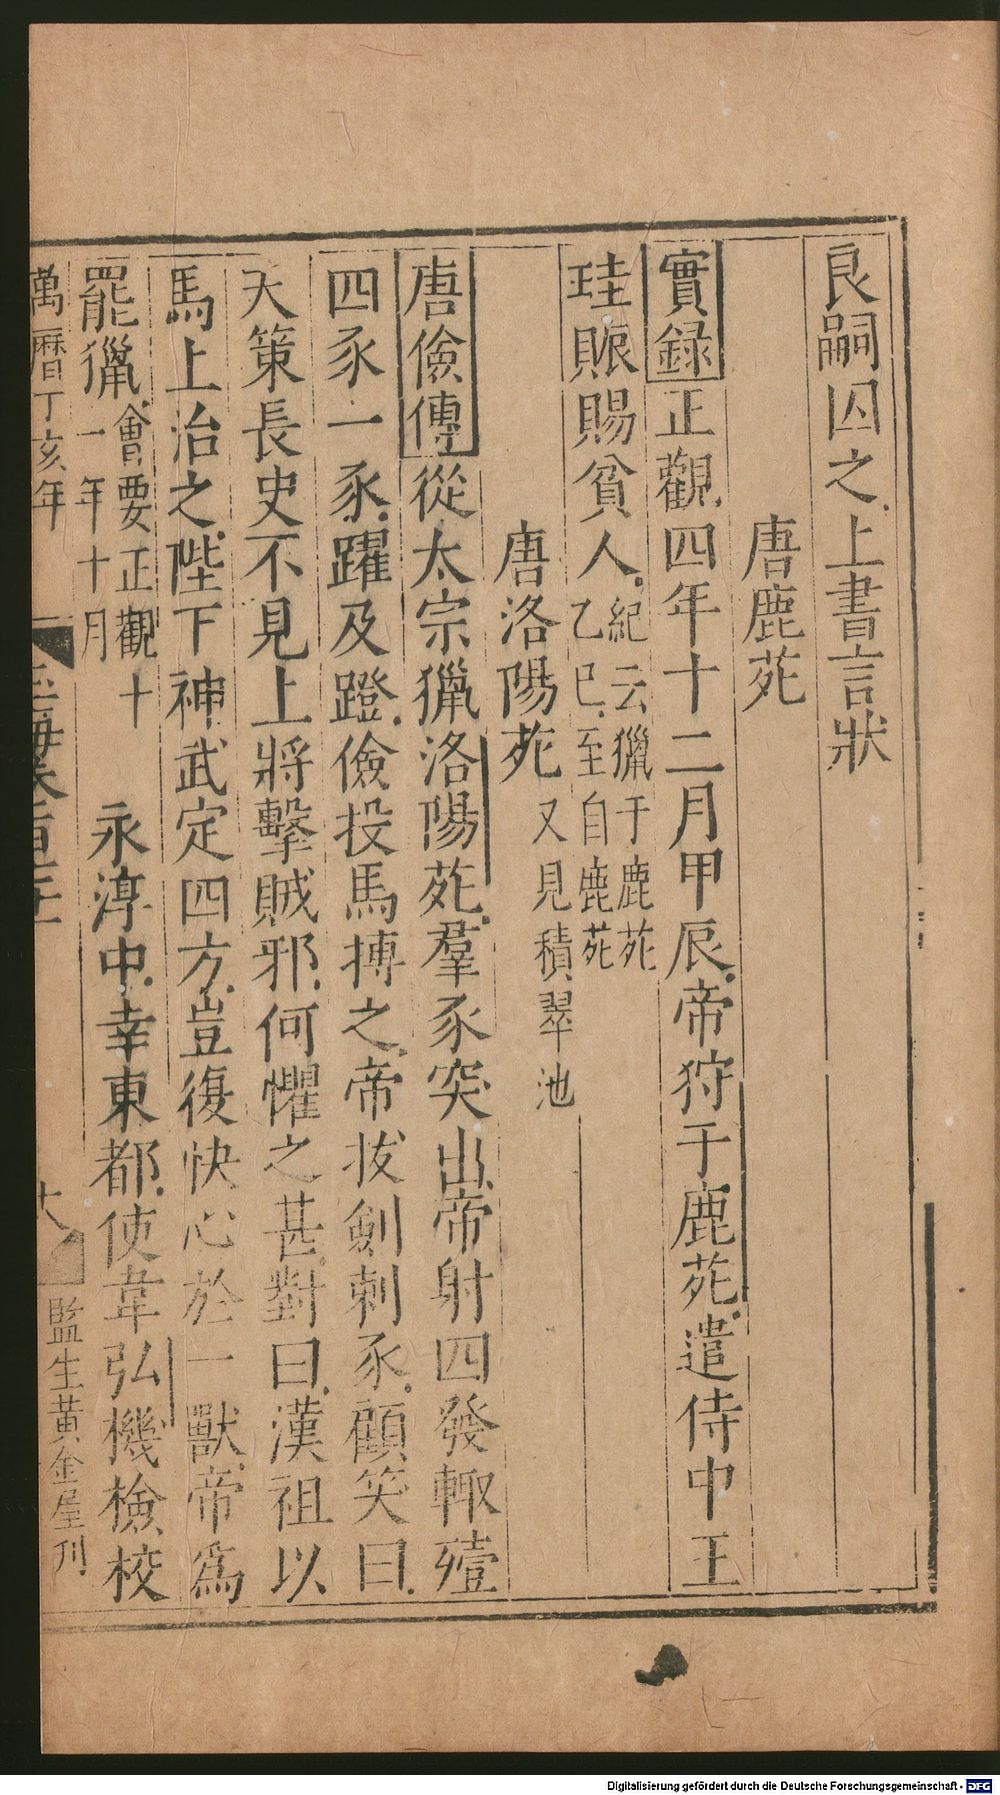 良嗣囚之上書言狀
唐鹿苑
實録正觀四年十二月甲辰帝狩于鹿苑遣侍中王
珪賑賜貧人紀云獵于鹿苑
乙巳至自鹿苑
唐洛陽苑又見積翠池
唐儉傳從太宗獵洛陽苑羣豕突出帝射四發輙殪
四豕一豕躍及蹬儉投馬搏之帝拔劍刺豕顧笑曰
天策長史不見上將擊賊邪何懼之甚對曰漢祖以
馬上治之陛下神武定四方豈復快心於一獸帝爲
罷獵會要正觀十
一年十月
永淳中幸東都使韋弘機檢校
萬曆丁亥年
監生黃金屋刋
Digitalisierung gefördert durch die Deutsche Forschungsgemeinschaft - DFG